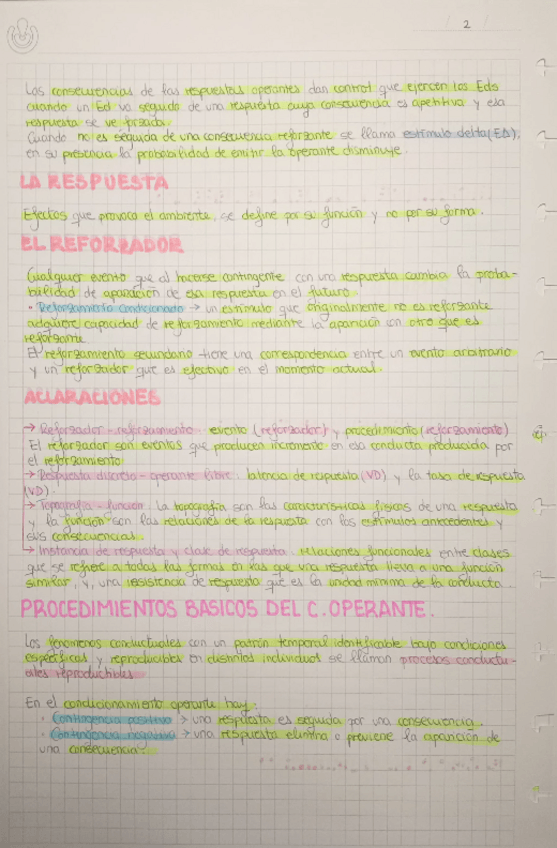 2
Las consecuencias de las respuestas operantes dan control que ejercen los Eds
cuando un Ed va seguido de una respuesta cuya consecuencia es apetitiva y esa
respuesta se ve forzada.
Cuando no es seguida de una consecuencia reforzante se llama estímulo delta (EΔ),
en su presencia la probabilidad de emitir la operante disminuye.
LA RESPUESTA
Efectos que provoca el ambiente, se define por su función y no por su forma.
EL REFORZADOR
Cualquier evento que al hacerse contingente con una respuesta cambia la proba-
bilidad de aparición de esa respuesta en el futuro.
· Reforzamiento condicionado → un estímulo que originalmente no es reforzante
adquiere capacidad de reforzamiento mediante la aparición con otro que es
reforzante.
El reforzamiento secundario tiene una correspondencia entre un evento arbitrario
y un reforzador que es efectivo en el momento actual.
ACLARACIONES
→ Reforzador - reforzamiento: evento (reforzador) y procedimiento (reforzamiento)
El reforzador son eventos que producen incremento en esa conducta producida por
el reforzamiento.
→ Respuesta discreta - operante libre: latencia de respuesta (VD) y la tasa de respuesta
(VD).
→ Topografía - función: la topografía son las características físicas de una respuesta
y la función son las relaciones de la respuesta con los estímulos antecedentes y
sus consecuencias.
→ Instancia de respuesta y clase de respuesta: relaciones funcionales entre clases
que se refiere a todas las formas en las que una respuesta lleva a una función
similar, y, una insistencia de respuesta que es la unidad mínima de la conducta.
PROCEDIMIENTOS BASICOS DEL C. OPERANTE.
Los fenómenos conductuales con un patrón temporal identificable bajo condiciones
específicas y reproducibles en distintos individuos se llaman procesos conductu-
ales reproducibles.
En el condicionamiento operante hay:
· Contingencia positiva → una respuesta es seguida por una consecuencia.
· Contingencia negativa → una respuesta elimina o previene la aparición de
una consecuencia.